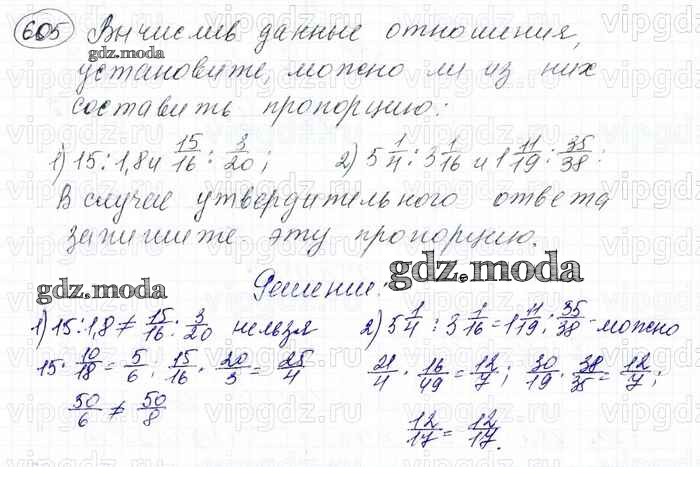 605 Вычислив данные отношения,
gdz.moda
установите, можно ли из них
составить пропорцию:
1) 15 : 1,8 и 15/16 : 3/20 ; 2) 5 1/4 : 3 1/16 и 1 11/19 : 35/38 .
В случае утвердительного ответа
запишите эту пропорцию.
gdz.moda gdz.moda
Решение:
1) 15 : 1,8 ≠ 15/16 : 3/20 нельзя 2) 5 1/4 : 3 1/16 = 1 11/19 : 35/38 - можно
15 · 10/18 = 5/6 ; 15/16 · 20/3 = 25/4 21/4 · 16/49 = 12/7 ; 30/19 · 38/35 = 12/7 ;
50/6 ≠ 50/8 12/17 = 12/17 .
vipgdz.ru